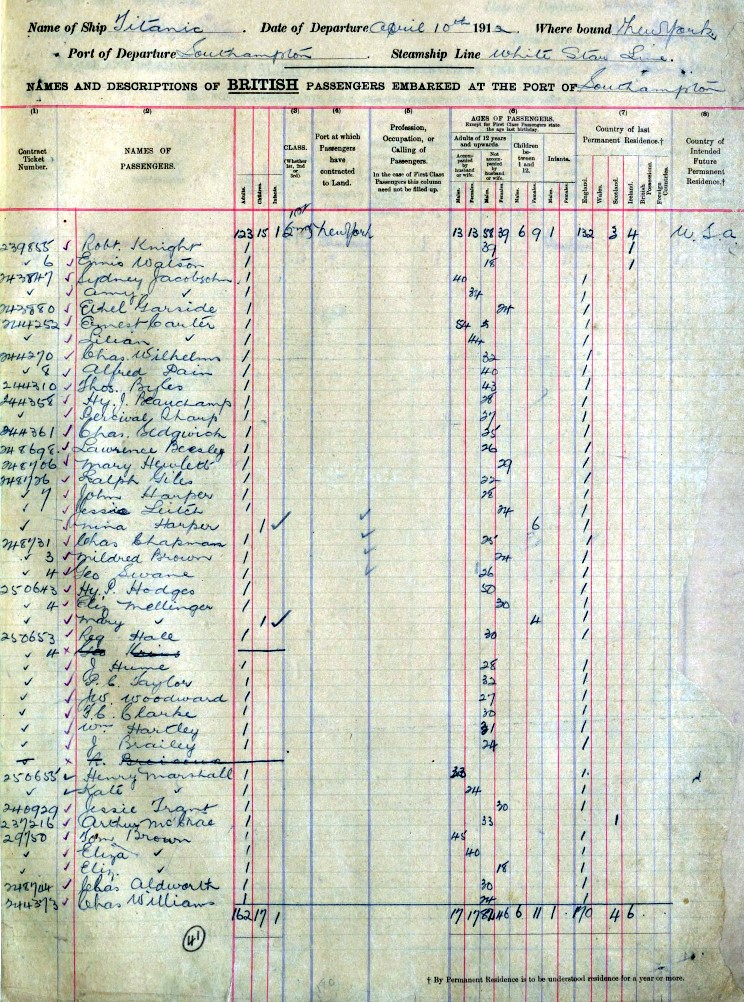 Name of Ship Titanic. Date of Departure April 10th 1912 Where bound New York
Port of Departure Southampton. Steamship Line White Star Line.
NAMES AND DESCRIPTIONS OF BRITISH PASSENGERS EMBARKED AT THE PORT OF Southampton
(1) (2) (3) (4) (5) (6) (7) (8)
Contract Ticket Number. NAMES OF PASSENGERS. Adults. Children. Infants. CLASS. (Whether 1st, 2nd or 3rd) Port at which Passengers have contracted to Land. Profession, Occupation, or Calling of Passengers. In the case of First Class Passengers this column need not be filled up. AGES OF PASSENGERS. Except for First Class Passengers state the age last birthday. Adults of 12 years and upwards. Accompanied by husband or wife. Males. Females. Not accompanied by husband or wife. Males. Females. Children between 1 and 12. Males. Females. Infants. Males. Females. Country of last Permanent Residence.† England. Wales. Scotland. Ireland. British Possessions. Foreign Countries. Country of Intended Future Permanent Residence.†
123 15 1 2nd New York 13 13 58 39 6 9 1 132 3 4 U.S.A.
239855 ✓ Robt. Knight 1 39 1
✓ 6 ✓ Ennis Watson 1 18 1
243847 ✓ Sydney Jacobsohn 1 40 1
✓ ✓ Amy ✓ 1 34 1
243880 ✓ Ethel Garside 1 24 1
244252 ✓ Ernest Carter 1 54 1
✓ ✓ Lilian ✓ 1 44 1
244270 ✓ Chas. Wilhelms 1 32 1
✓ 8 ✓ Alfred Pain 1 40 1
244310 ✓ Thos. Byles 1 43 1
244358 ✓ Hy. J. Beauchamp 1 28 1
✓ ✓ Percival Sharp 1 27 1
244361 ✓ Chas. Sedgwick 1 25 1
248698 ✓ Lawrence Beesley 1 26 1
248706 ✓ Mary Hewlett 1 29 1
248726 ✓ Ralph Giles 1 22 1
✓ 7 ✓ John Harper 1 28 1
✓ ✓ Jessie Leitch 1 24 1
✓ ✓ Nina Harper 1 ✓ 6 1
248731 ✓ Chas Chapman 1 25 1
✓ 3 ✓ Mildred Brown 1 24 1
✓ 4 ✓ Geo Swane 1 26 1
250643 ✓ Hy. P. Hodges 1 50 1
✓ 4 ✓ Eliz Mellinger 1 30 1
✓ ✓ Mary ✓ 1 ✓ 4 1
250653 ✓ Reg Hale 1 30 1
✓ 4 × Geo Krins
✓ ✓ J Hume 1 28 1
✓ ✓ P. C. Taylor 1 32 1
✓ ✓ J.W. Woodward 1 27 1
✓ ✓ F.C. Clarke 1 30 1
✓ ✓ Wm Hartley 1 31 1
✓ ✓ J Brailey 1 24 1
✓ ×
250655 ✓ Henry Marshall 1 1
✓ ✓ Kate ✓ 1 24 1
240929 ✓ Jessie Trant 1 30 1
237216 ✓ Arthur McCrae 1 33 1
29750 ✓ Brown 1 45 1
✓ ✓ Eliza ✓ 1 40 1
✓ ✓ Eliz. ✓ 1 18 1
248744 ✓ Chas Aldworth 1 30 1
244373 ✓ Chas Williams 1 24 1
162 17 1 17 17 84 46 6 11 1 170 4 6
41
† By Permanent Residence is to be understood residence for a year or more.